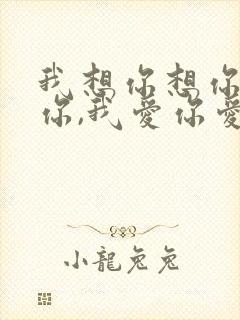 我想你想你
你,我爱你爱
小龍兔兔